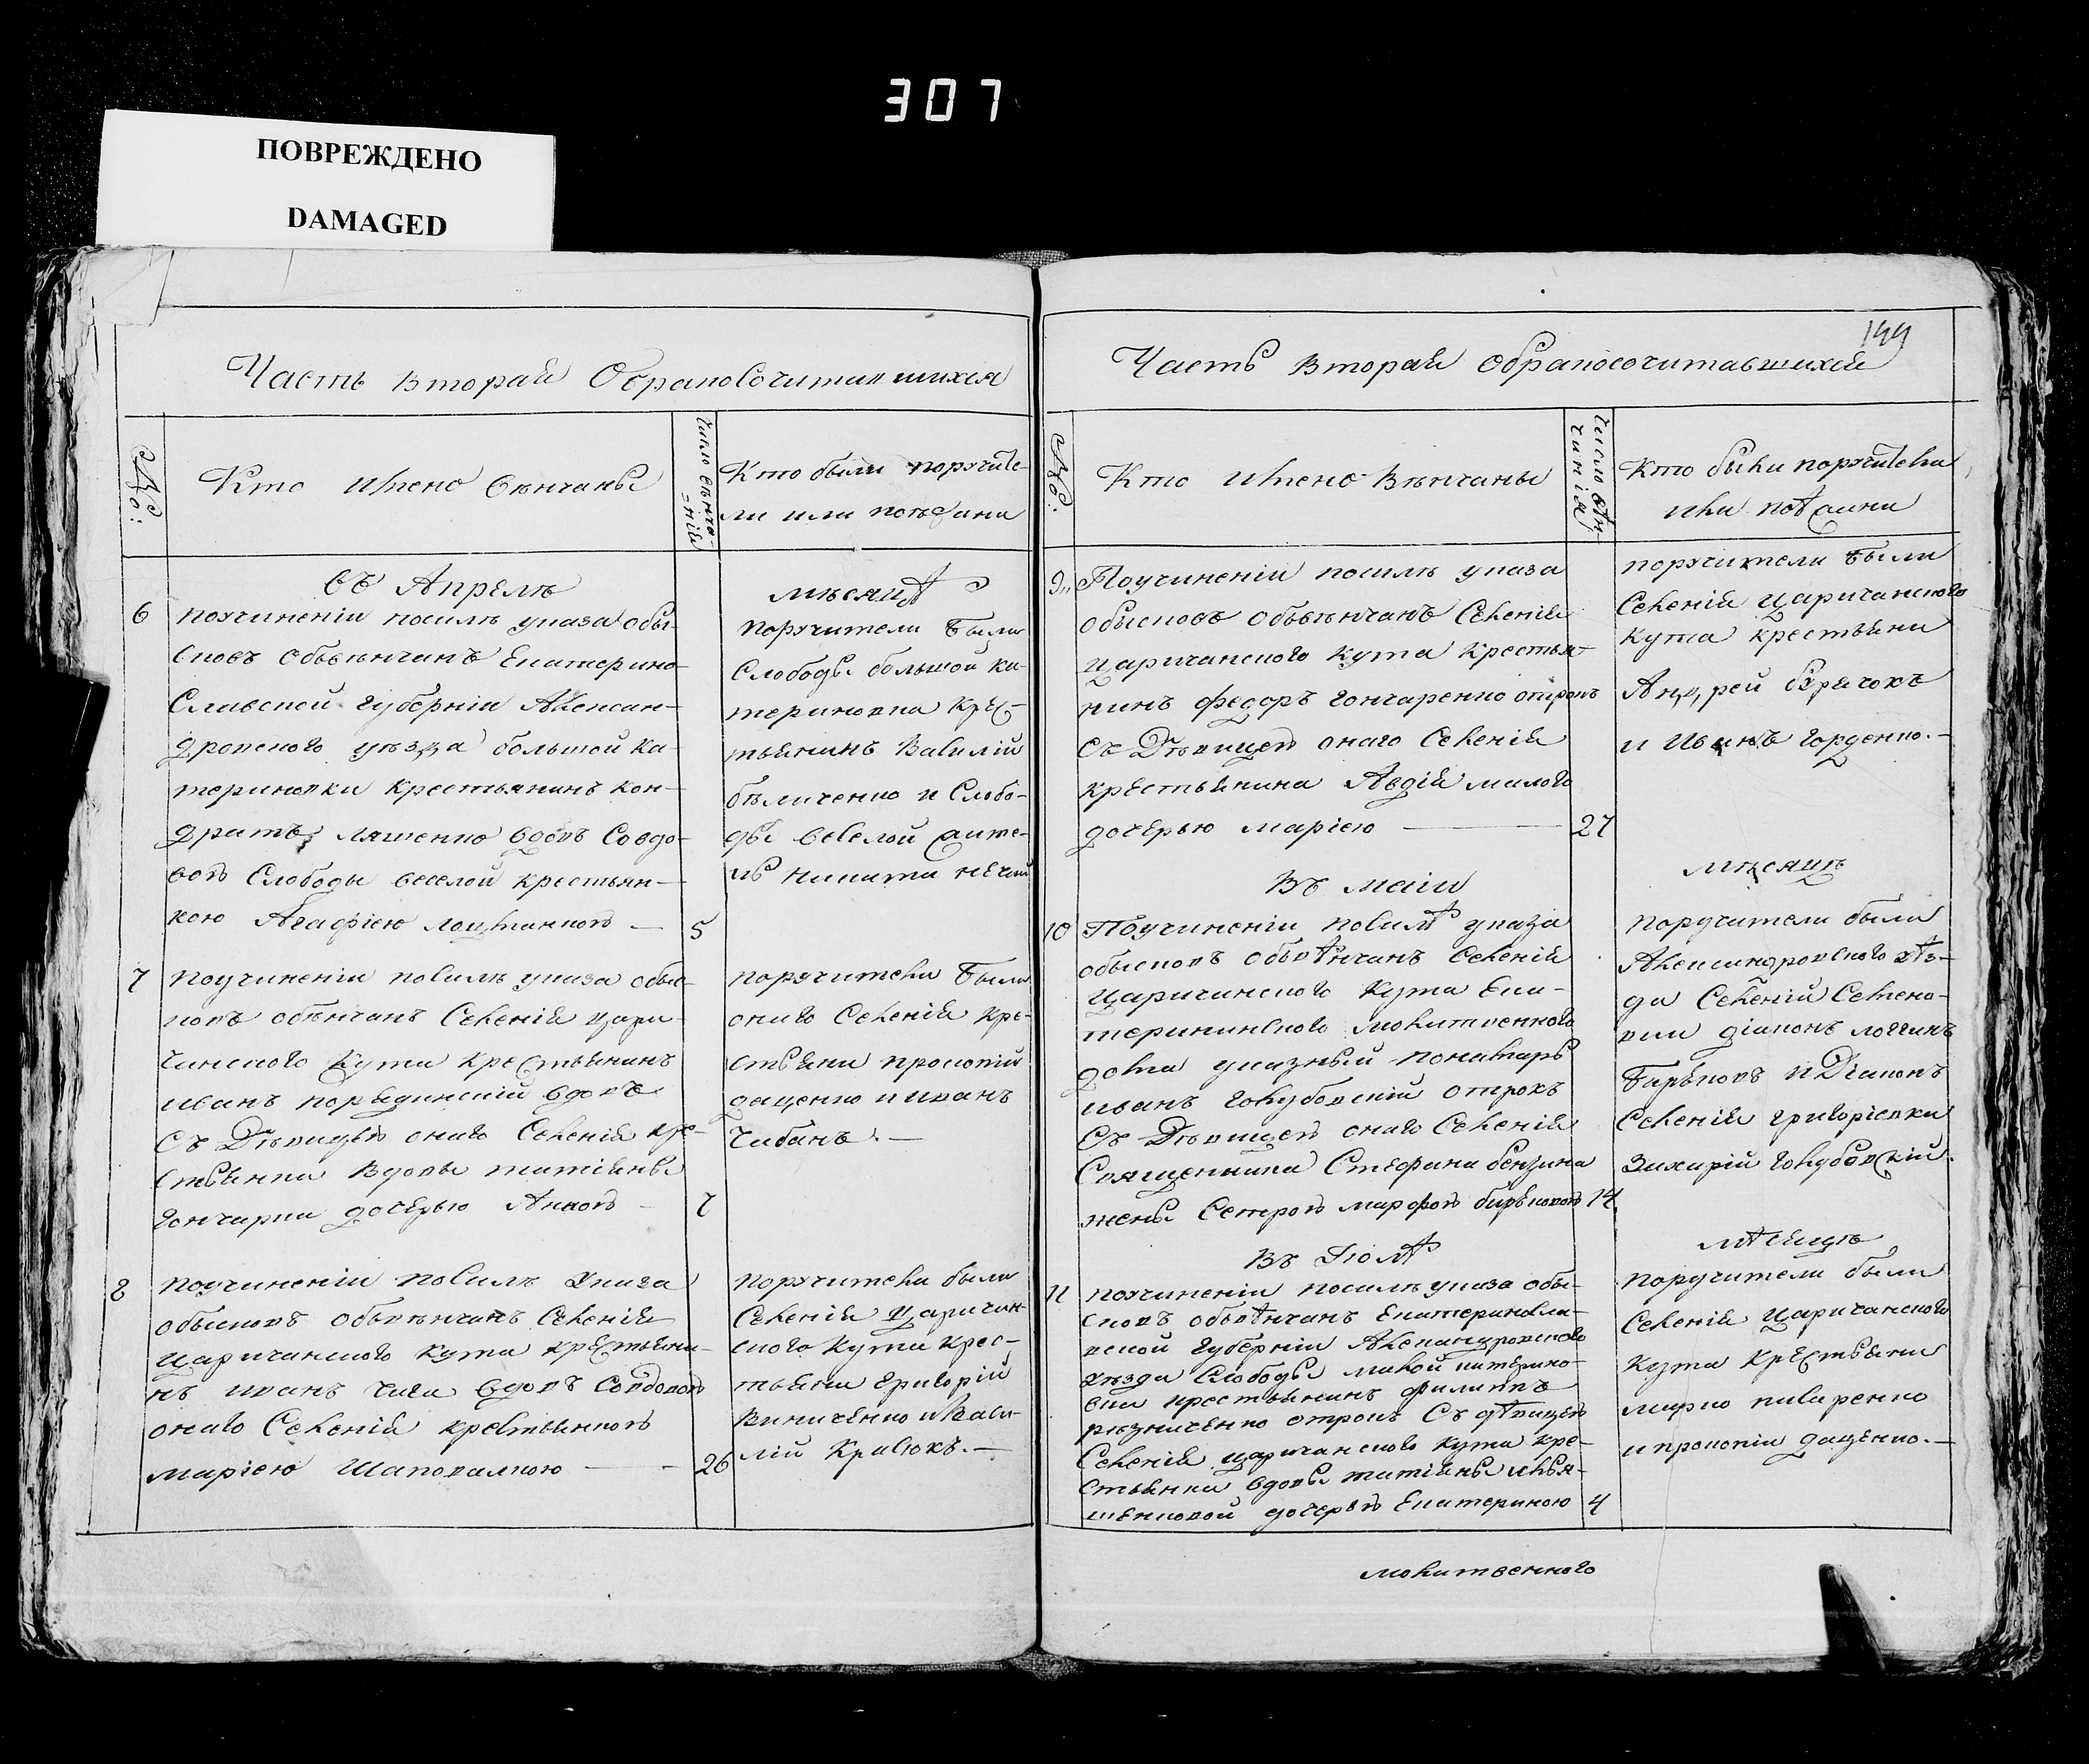 307
ПОВРЕЖДЕНО
DAMAGED
Часть вторая Обракосочитавшихся
№о:
Кто имено венчаны
число венча-
=нія
Кто были поручите-
ли или поезжани
въ Апреле
месяце
6
поучиненіи посиле указа обы-
сковъ обвенчанъ Екатерино-
Славской губерніи Александ-
дровского уезда большой Ка-
териновки крестьянинъ Кон-
дратъ ляшенко вдовъ Совдо-
вою Слободы веселой крестьян-
кою Агафіею
5
поручители были
Слободы большой ка-
териновки крес-
тьянинъ Василій
беличенко и Слобо-
ды веселой жите-
ль никита нечай
7
поучиненіи посиле указа обыс-
ковъ обенчанъ Селенія цари-
чанского Кута крестьянинъ
иванъ вдовъ
съ Девицею онаго Селенія кре-
стьянки вдовы татіяны
гончарки дочерью Анною
7
поручители были
онаго Селенія кре-
стьяни прокопій
даценко и иванъ
Чабанъ.
8
поучиненіи посиле указа
обысковъ обвенчанъ Селенія
Царичанского кута крестьяни-
нъ иванъ вдовъ Совдовою
онаго Селенія крестьянкою
маріею Шаповалкою
26
поручители были
Селенія Царичан-
ского Кута крес-
тьяни григорій
Виниченко и Васи-
лій
144
Часть вторая Обракосочитавшихся
№о:
Кто имено венчаны
число вен-
чинія
Кто были поручители
или поезжани
9
Поучиненіи посиле указа
обысковъ обвенчанъ Селенія
царичанского кута крестья-
нинъ федоръ гончаренко отрокъ
съ Девицею онаго Селенія
крестьянина Авдія малого
дочерью маріею
27
поручители были
Селенія царичанского
кута крестьяни
Андрей
и Иванъ горденко.
Въ маіи
месяце
10
Поучиненіи посиле указа
обысковъ обвѣнчанъ Селенія
Царичанского Кута Ека-
терининского молитвенного
дома указный понамарь
иванъ голубовскій отрокъ
Съ Девицею онаго Селенія
Священника Стефана бензина
жены Сестрою марфою бирюковою
14
поручители были
Александровского уѣз-
да Селенія Семено-
вки діаконъ логгинъ
бирюковъ и Діаконъ
Селенія григоріевки
Захарій голубовскій.
Въ Іюлѣ
мѣсяце
11
поучиненіи посиле указа обы-
сковъ обвѣнчанъ Екатеринсла-
вской губерніи Александровского
уезда Слободы малой катерино-
вки крестьянинъ филиппъ
резниченко отрокъ Съ дѣвицею
Селенія царичанского кута кре-
стьянки вдовы татіяны илья-
шенковой дочерью Екатериною
4
поручители были
Селенія Царичанского
кута крестьяни
марко писаренко
и прокопіи даценко.
молитвенного